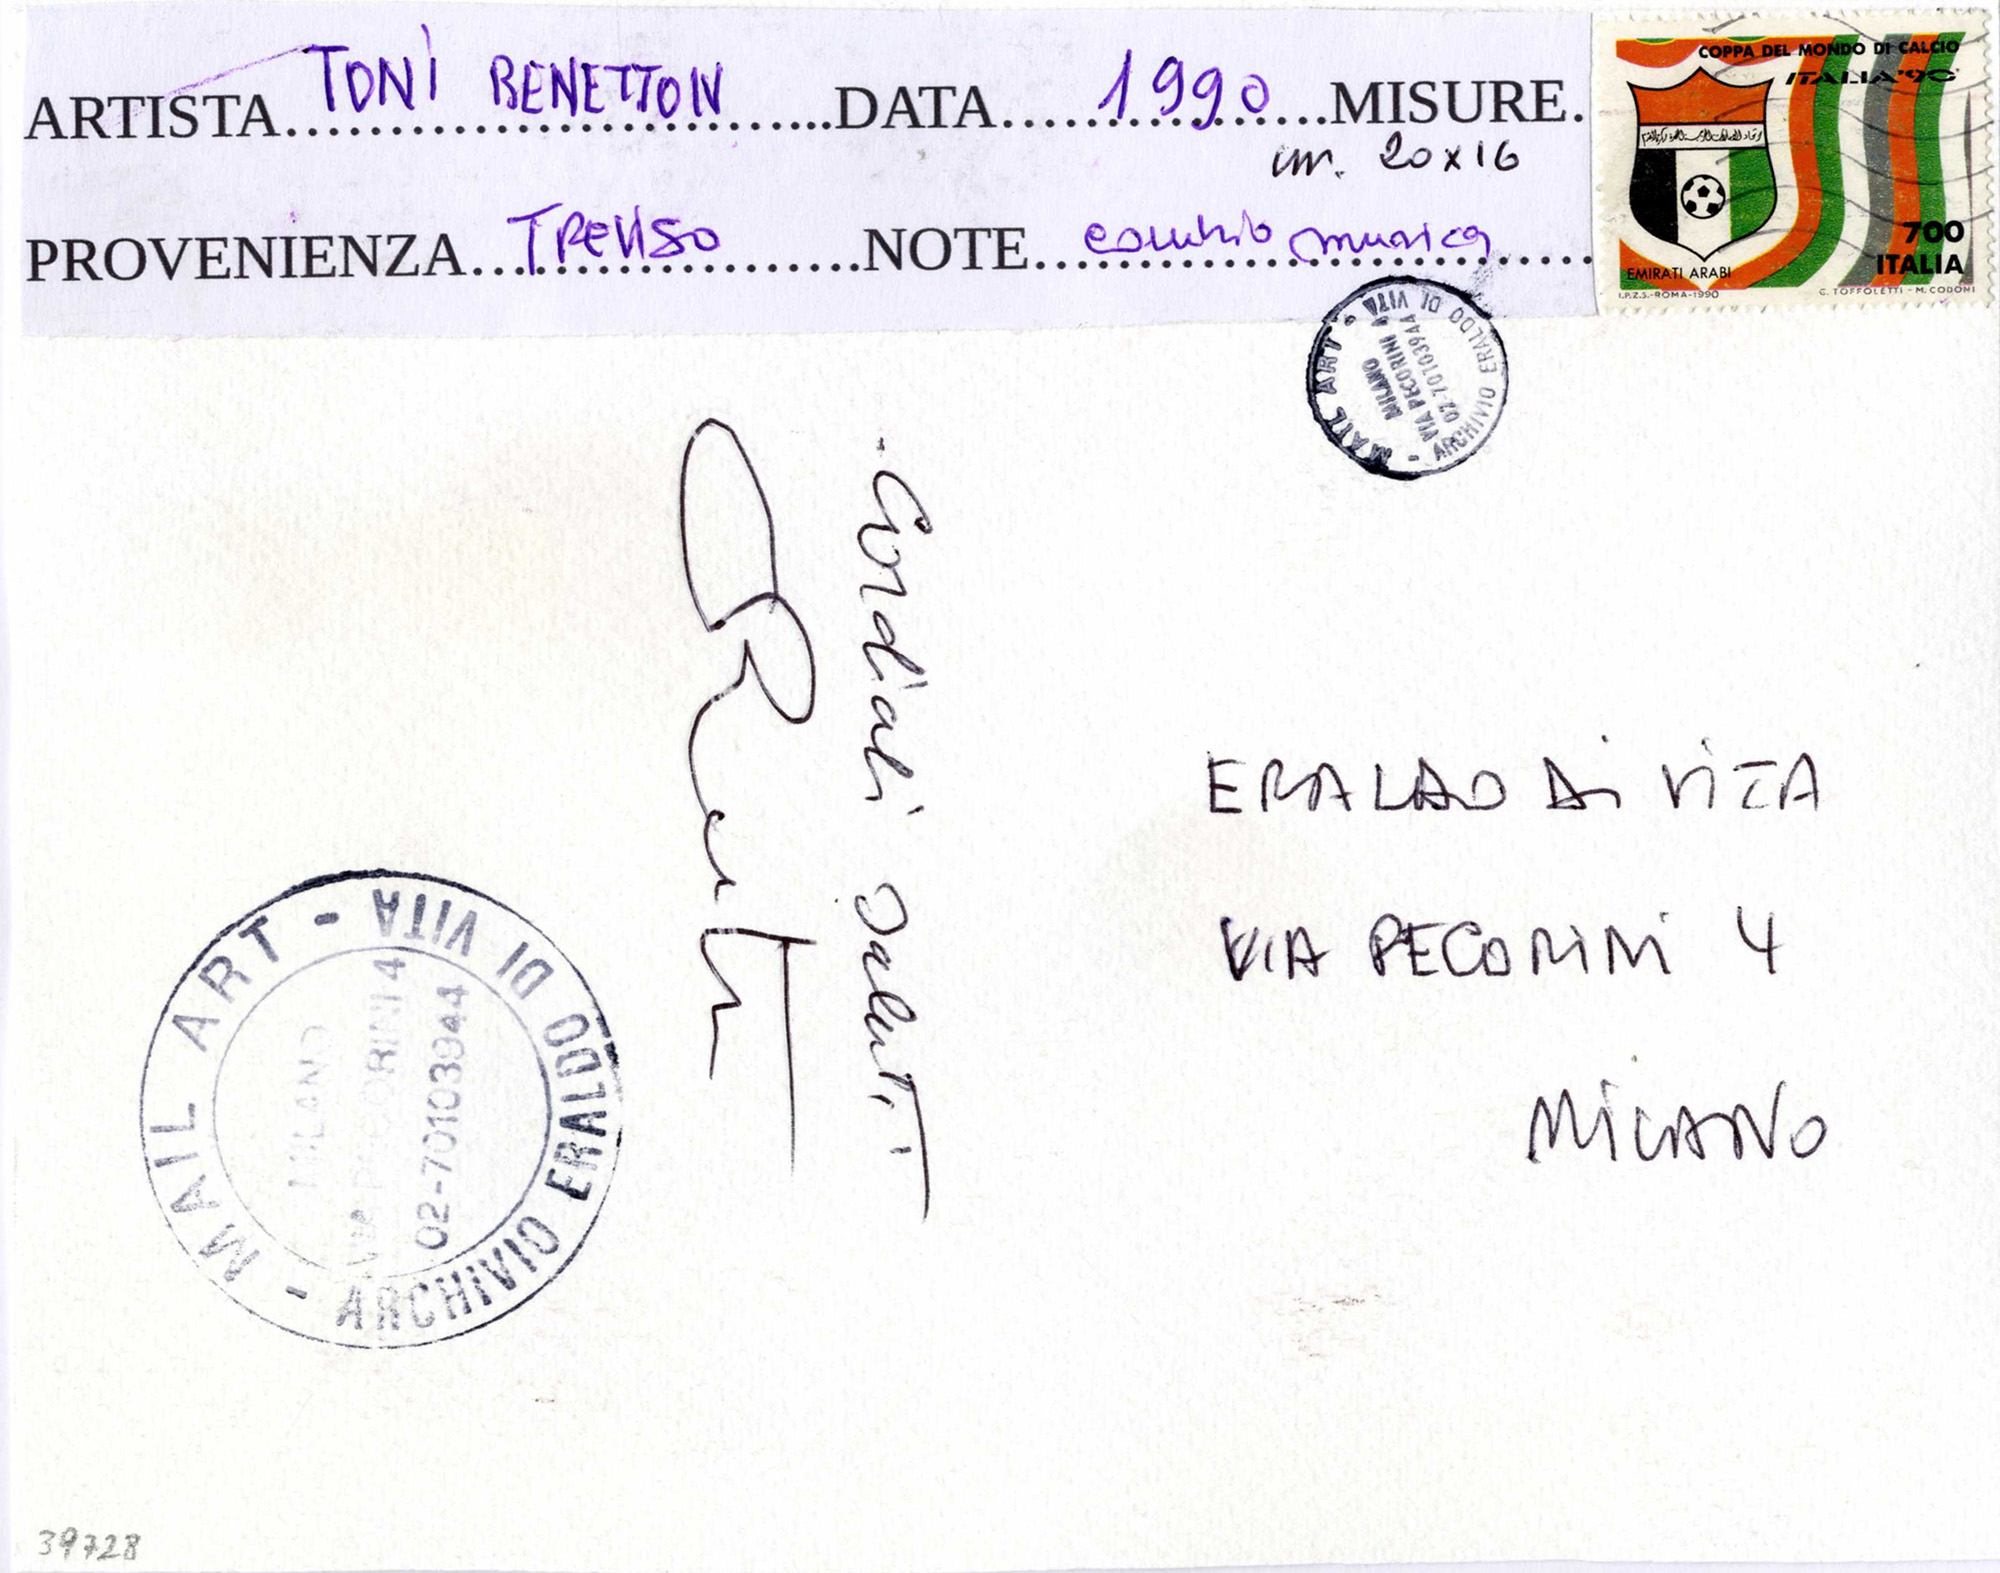 ARTISTA TONI BENETTON DATA 1990 MISURE.
cm. 20x16
PROVENIENZA TREVISO NOTE musica
COPPA DEL MONDO DI CALCIO
ITALIA '90
700
ITALIA
EMIRATI ARABI
I.P.Z.S.-ROMA-1990 C. TOFFOLETTI - M. CODONI
MAIL ART - ARCHIVIO ERALDO DI VITA -
MILANO
VIA PECORINI 4
02-7010394
Cordiali saluti
ERALDO Di ViTA
ViA PECORiNi 4
MiLANO
MAIL ART - ARCHIVIO ERALDO DI VITA -
MILANO
VIA PECORINI 4
02-70103944
39728